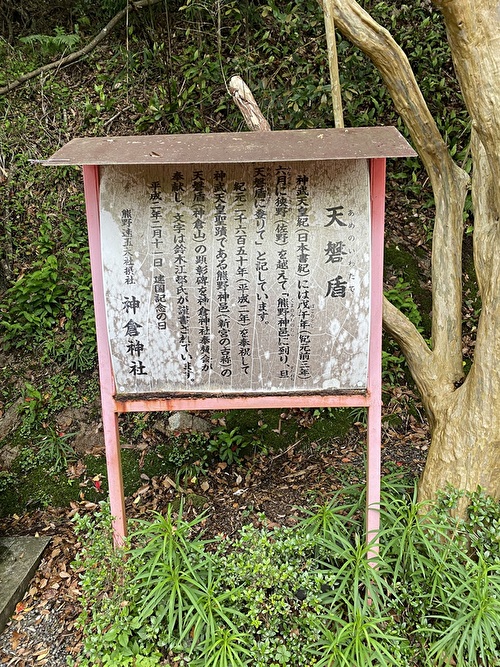 天磐盾
あめのいわたて
神武天皇紀(日本書紀)には戊午年(紀元前三年)
六月に狭野(佐野)を越えて「熊野神邑に到り、且
天磐盾に登りて」と記しています。
紀元二千六百五十年(平成二年)を奉祝して
神武天皇聖蹟である熊野神邑(新宮の古称)の
天磐盾(神倉山)の顕彰碑を神倉神社奉賛会が
奉献し、文字は鈴木江邨氏が謹書されています。
平成二年二月十一日 建国記念の日
熊野速玉大社摂社 神倉神社